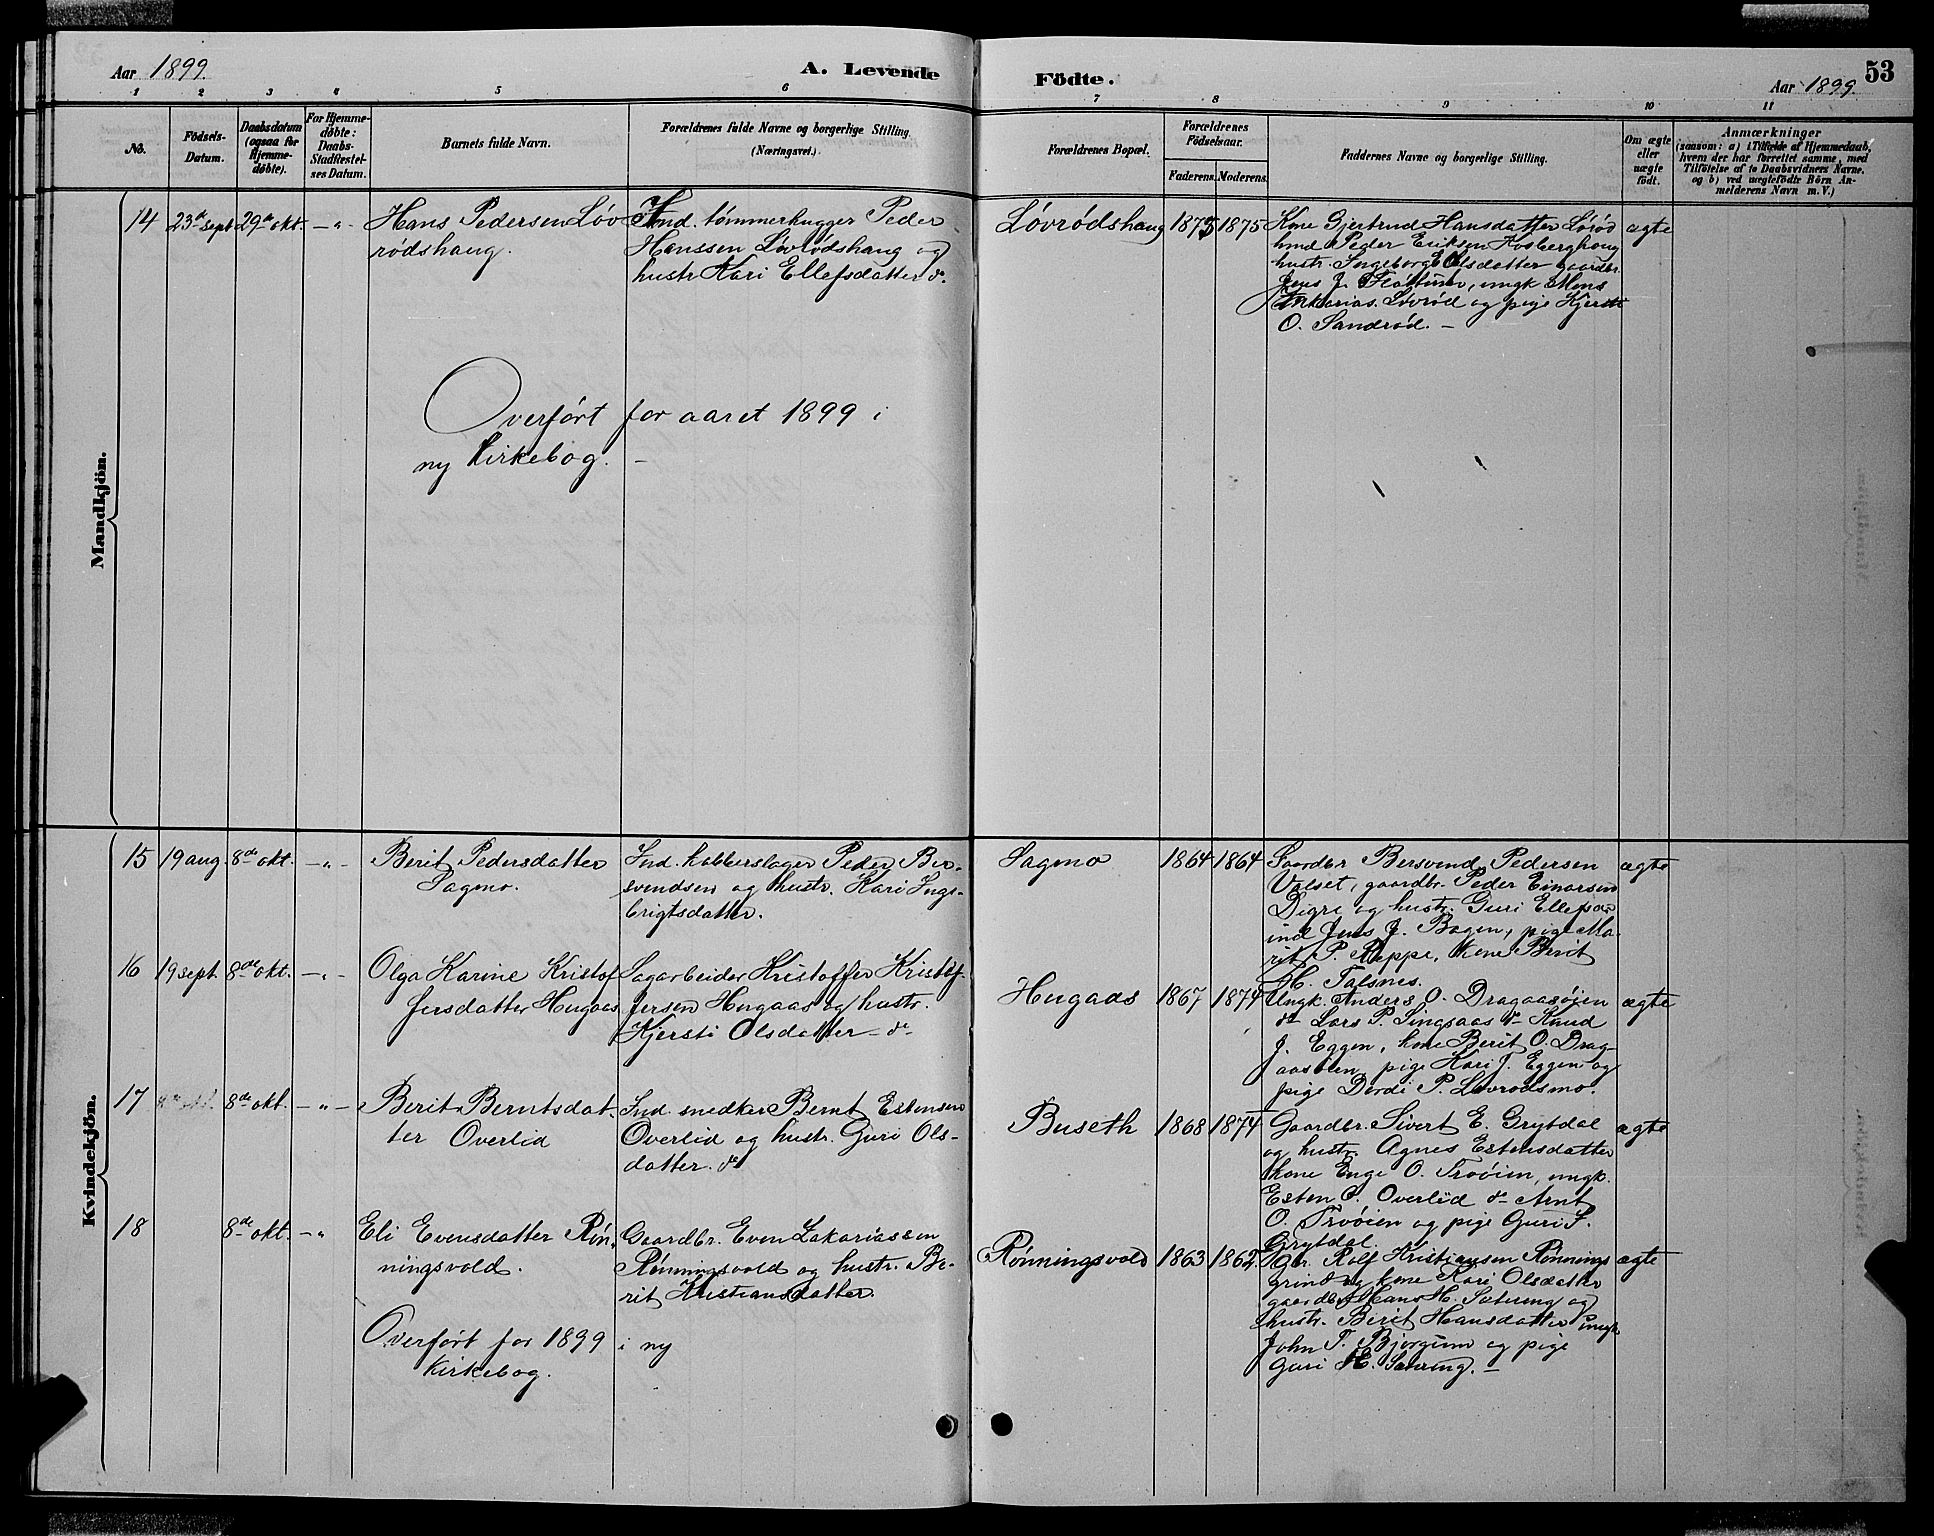 Aar 1899.
A. Levende Födte.
Aar 1899.
53
1 2 3 4 5 6 7 8 9 10 11
No.
Födsels-
Datum.
Daabsdatum
(ogsaa for
Hjemme-
døbte).
For Hjemme-
døbte:
Daabs-
Stadfæstel-
ses Datum.
Barnets fulde Navn.
Forældrenes fulde Navne og borgerlige Stilling
(Næringsvei.)
Forældrenes Bopæl.
Forældrenes
Födselsaar.
Faderens. Moderens.
Faddernes Navne og borgerlige Stilling.
Om ægte
eller
uægte
födt.
Anmærkninger
(saasom: a) i Tilfælde af Hjemmedaab,
hvem der har forrettet samme, med
Tilföielse af to Daabsvidners Navne.
og b) ved uægtefödte Börn An-
melderens Navn m. V.)
Mandkjön.
14 23de sept 29de okt. — " -
Hans Pedersen Löv
rødshaug.
Ind. tømmerhugger Peder
Hanssen Lövrödshaug og
hustr. Kari Ellefsdatter do.
Lövrödshaug 1875 1875
Kone Gjertrud Hansdatter
ind Peder Eriksen
hustr. Ingeborg E. Olsdatter gaardbr.
Jens J. ungk Mons
Lövröd og pige Kjersti
O. Sandröd. —
ægte
Overfört for aaret 1899 i
ny Kirkebog. —
Kvindekjön.
15 19 aug. 8de okt. — " -
Berit Pedersdatter
Sagmo.
Ind. kobberslager Peder Ber-
svendsen og hustr. Kari Inge-
brigtsdatter.
Sagmo 1864 1864
Gaardbr Bersvend Pedersen
Valset, gaardbr. Peder Einarsen
Digre og hustr. Guri Ellefsdr
ind Jens J. Bogen, pige Ma-
rit P. Reppe, kone Berit
H. Talsnes.
ægte
16 19 sept. 8de okt. — " -
Olga Karine Kristof
fersdatter Hugaas
Sagarbeider Kristoffer Kristof-
fersen Hugaas og hustr.
Kjersti Olsdatter do
Hugaas 1867 1874
Ungk. Anders O. Dragaasöien
do Lars P. Singsaas do Knud
J. Eggen, kone Berit O. Drag-
aasöien, pige Kari J. Eggen og
pige Dordi P. Lövrödsmo.
ægte
17 8de okt. — " —
Berit Berntsdat-
ter Overlid
Ind. snedker Bernt Estensen
Overlid og hustr. Guri Ols-
datter. do
Buseth 1868 1874
Gaardbr. Sivert E. Grytdal
og hustr. Agnes Estensdatter
kone Enge O. Troöien, ungk.
Esten O. Overlid do Arnt
O. Troöien og pige Guri S.
Grytdal.
ægte
18 8de okt. - "
Eli Evensdatter Rön-
ningsvold.
Gaardbr. Even Zakariassen
Rönningsvold og hustr. Be-
rit Kristiansdatter
Rønningsvold 1863 1862.
Rolf Kristiansen Rönnings
grind og kone Kari Olsdatter
gaardbr. Hans H. Sætering og
hustr. Berit Hansdatter ungk
John T. Bjorgum og pige
Guri H. Sætering. —
ægte
Overfört for 1899 i ny
Kirkebog.